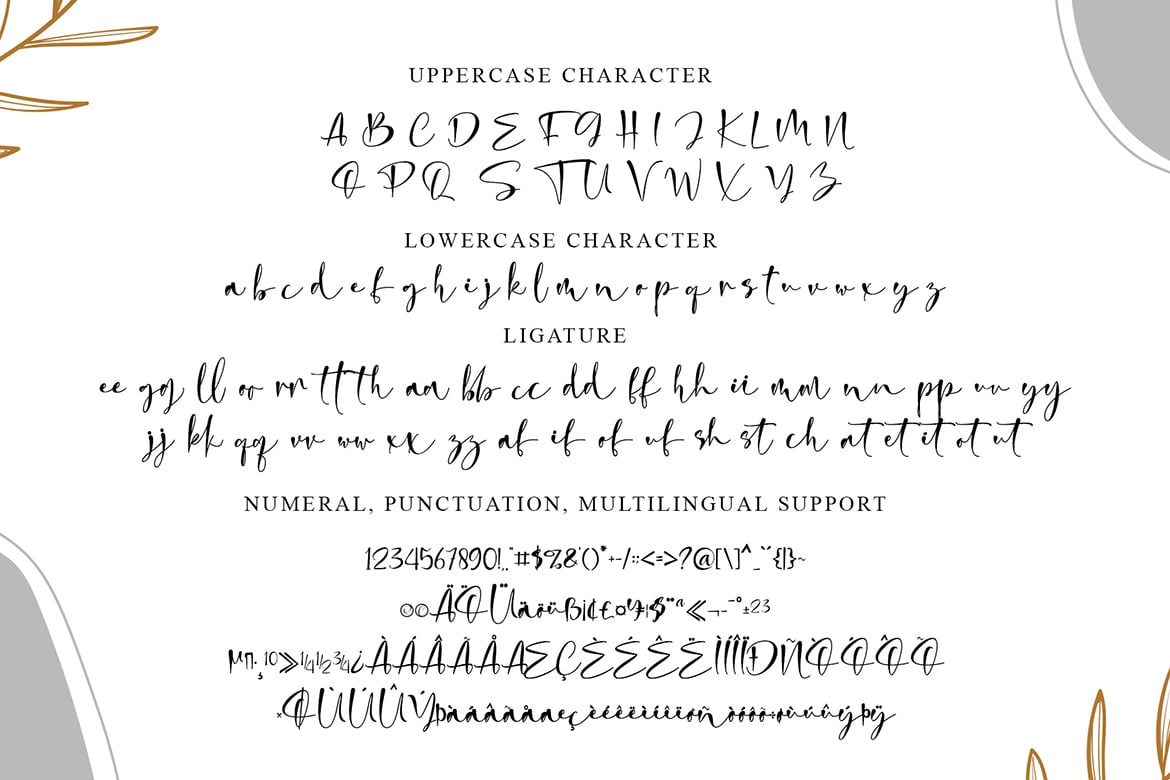 UPPERCASE CHARACTER
A B C D E F G H I J K L M N
O P Q R S T U V W X Y Z
LOWERCASE CHARACTER
a b c d e f g h i j k l m n o p q r s t u v w x y z
LIGATURE
ee gg ll oo rr tt th aa bb cc dd ff hh ii mm nn pp uu yy
jj kk qq vv ww xx zz af if of uf sh st ch at et it ot ut
NUMERAL, PUNCTUATION, MULTILINGUAL SUPPORT
1234567890!.,"#$%&'()*+-/:;<=>?@[\]^_`{|}~
ÄÖÜäöüß¡¢£¤¥¦§¨ª«¬-¯°±23
µ¶·¸10»¼½¾¿ÀÁÂÃÄÅÆÇÈÉÊËÌÍÎÏÐÑÒÓÔÕ
×ØÙÚÛÝþàáâãäåæçèéêëìíîïðñòóôõ÷øùúûýþÿ